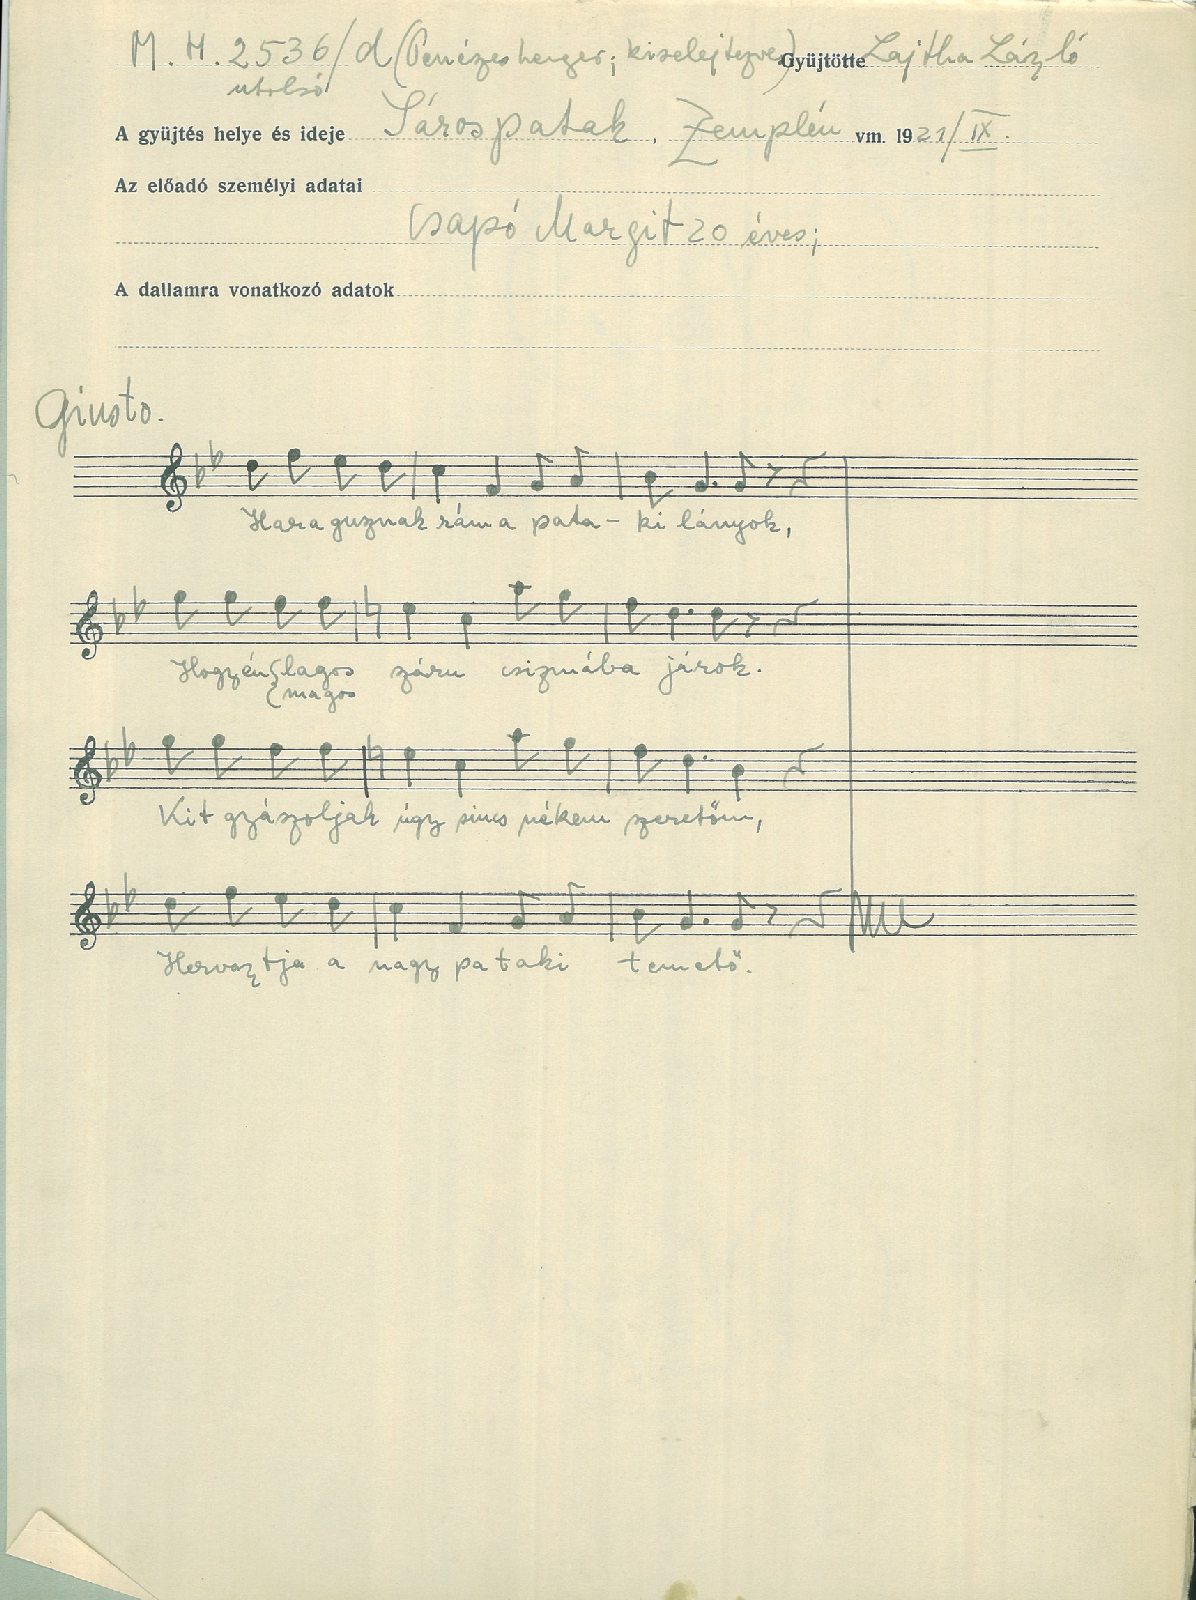 M. H. 2536/d (Penészes henger; kiselejtezve) Gyüjtötte Lajtha László
utolsó
A gyüjtés helye és ideje Sárospatak, Zemplén vm. 1921/IX.
Az előadó személyi adatai
Csapó Margit 20 éves;
A dallamra vonatkozó adatok
Giusto.
Haraguznak rám a pata - ki lányok,
Hogy én { lagos száru csizmába járok.
{ magos
Kit gyászoljak úgy sincs nékem szeretőm,
Hervaztja a nagy pataki temető.